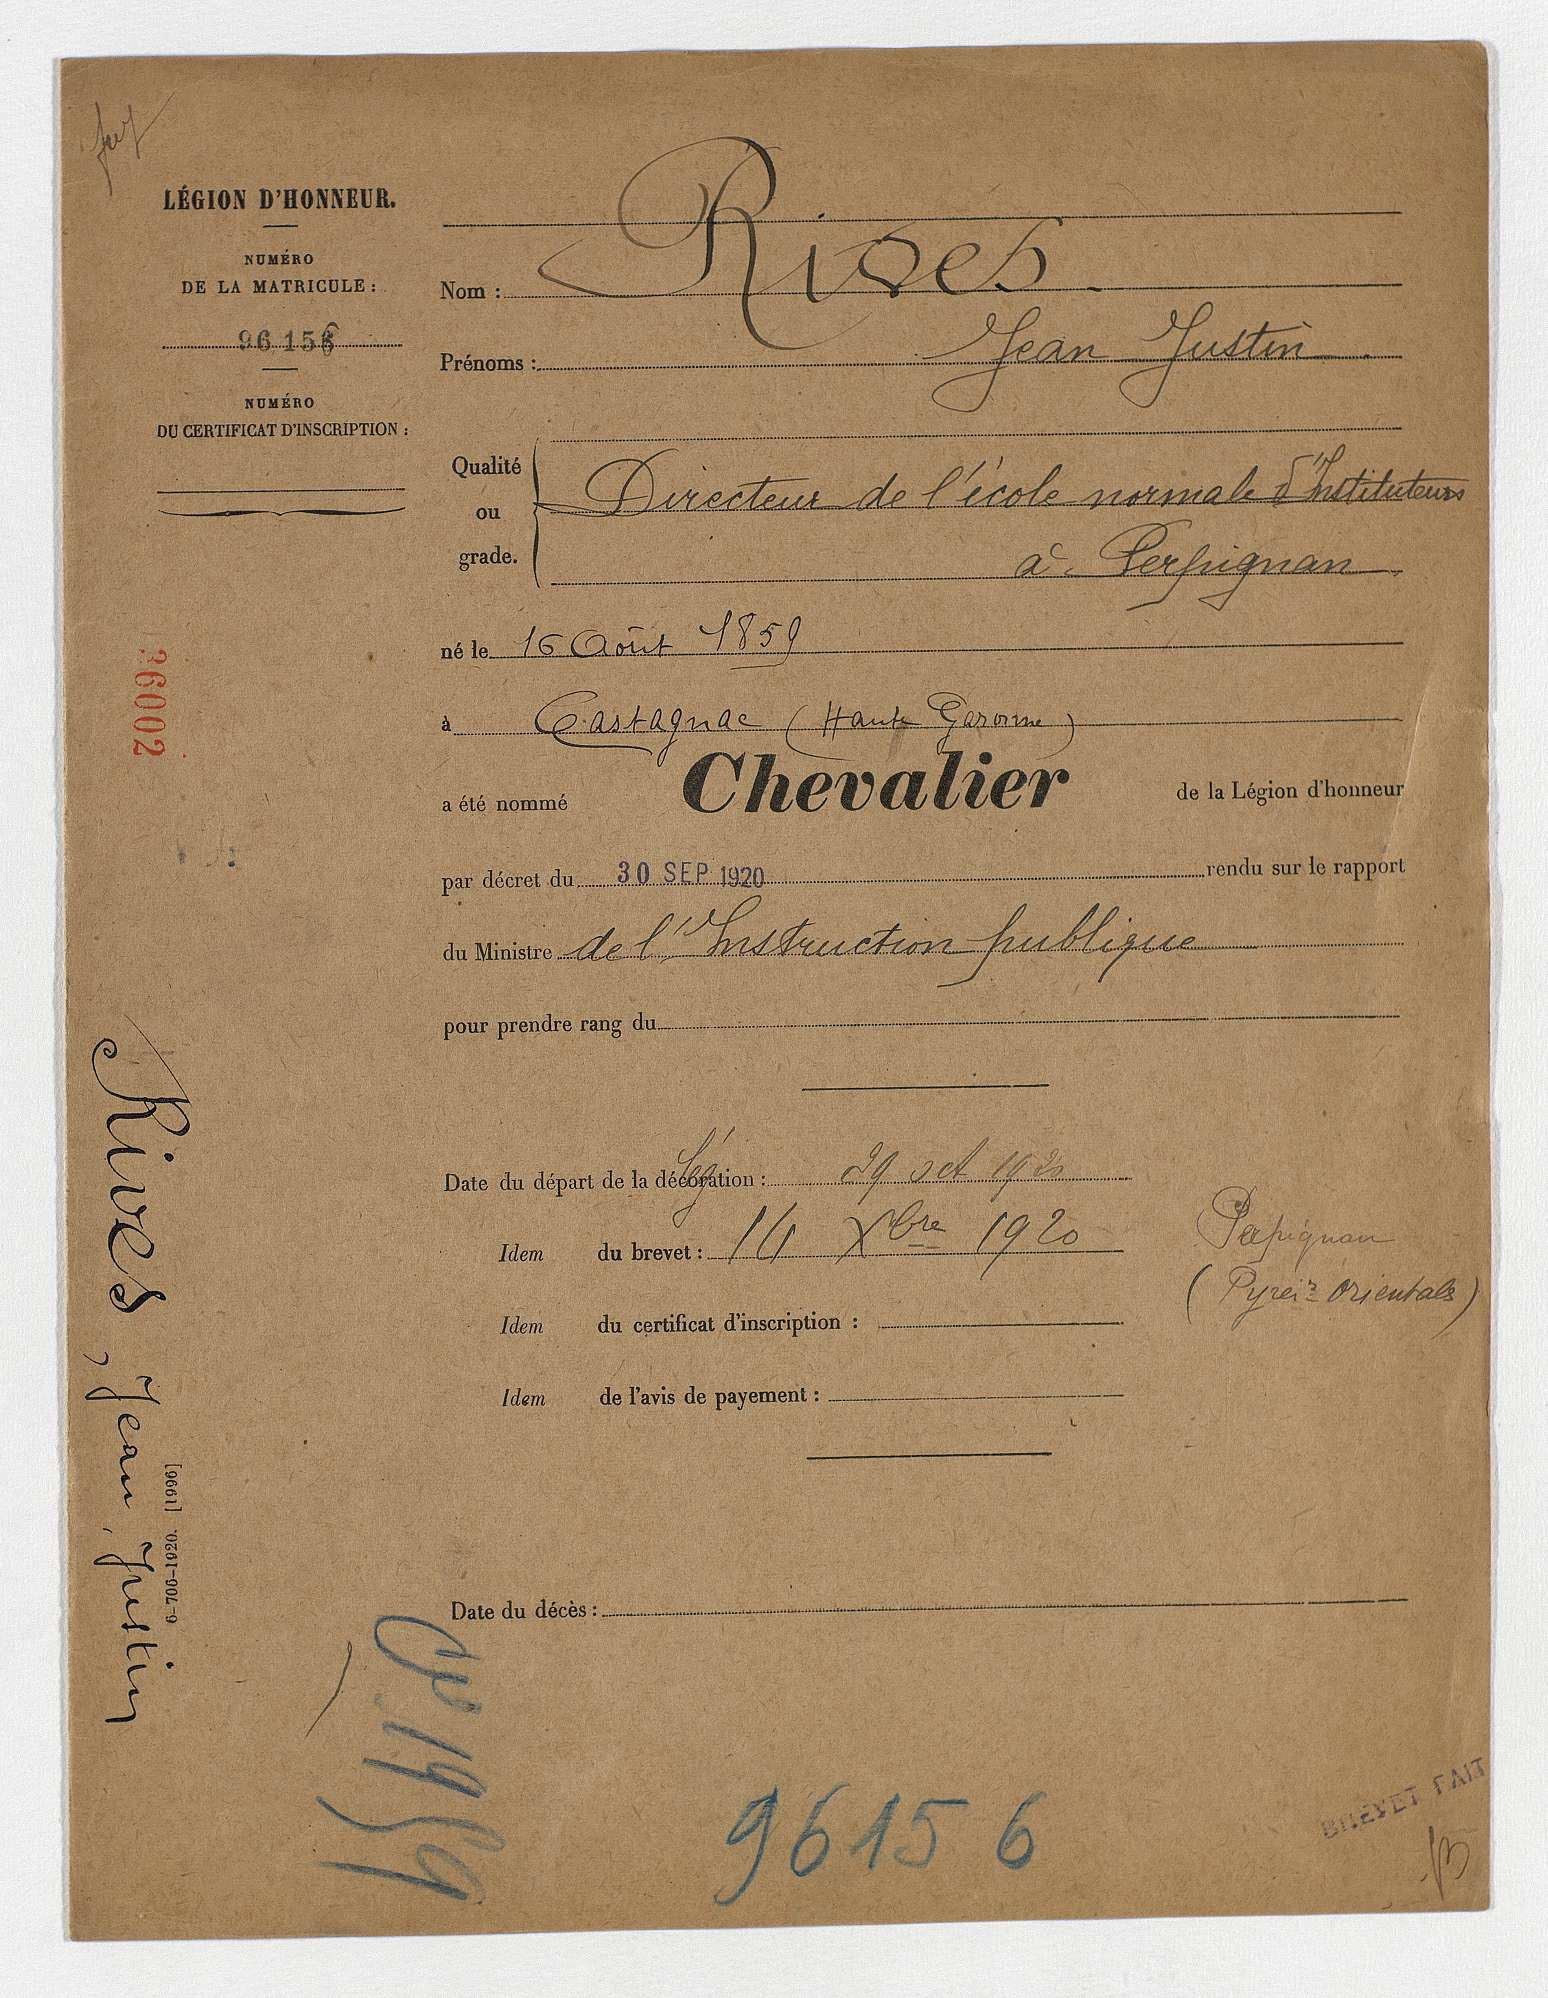 LÉGION D'HONNEUR.
NUMÉRO
DE LA MATRICULE :
96 156
NUMÉRO
DU CERTIFICAT D'INSCRIPTION :
Nom : Rives
Prénoms : Jean Justin
Qualité
ou
grade.
Directeur de l'école normale d'Instituteurs
à Perpignan
né le 16 Août 1859
à Castagnac (Haute Garonne)
a été nommé Chevalier de la Légion d'honneur
par décret du 30 SEP 1920 rendu sur le rapport
du Ministre de l'Instruction publique
pour prendre rang du
Date du départ de la décoration : 29 oct 1920
Lég
Idem du brevet : 14 Xbre 1920
Perpignan
(Pyréés Orientales)
Idem du certificat d'inscription :
Idem de l'avis de payement :
Date du décès :
36002
Rives, Jean, Justin
6-706-1920. [1996]
96156
BREVET FAIT